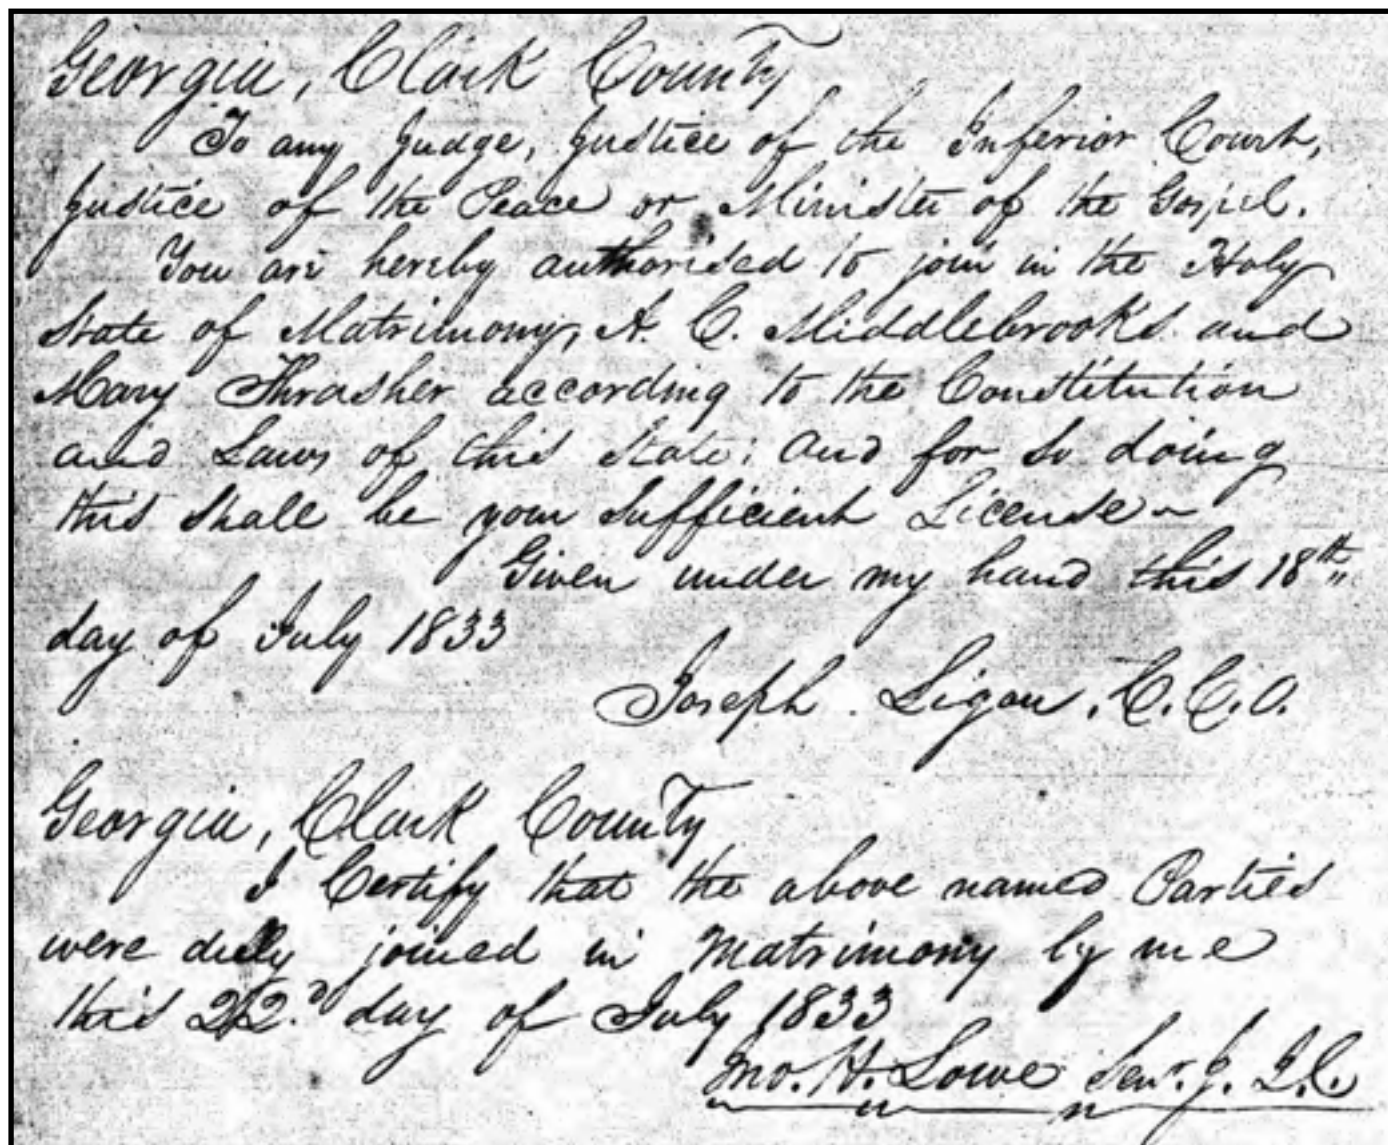 Georgia, Clark County
To any Judge, Justice of the Inferior Court,
Justice of the Peace or Minister of the Gospel.
You are hereby authorised to join in the Holy
State of Matrimony, A. C. Middlebrooks and
Mary Thrasher according to the Constitution
and Laws of this State; and for so doing
this shall be your sufficient License~
Given under my hand this 18th
day of July 1833
Joseph Ligon, C.C.O.
Georgia, Clark County
I Certify that the above named Parties
were duly joined in Matrimony by me
this 22d day of July 1833
Jno. H. Lowe Senr. J. I. C.